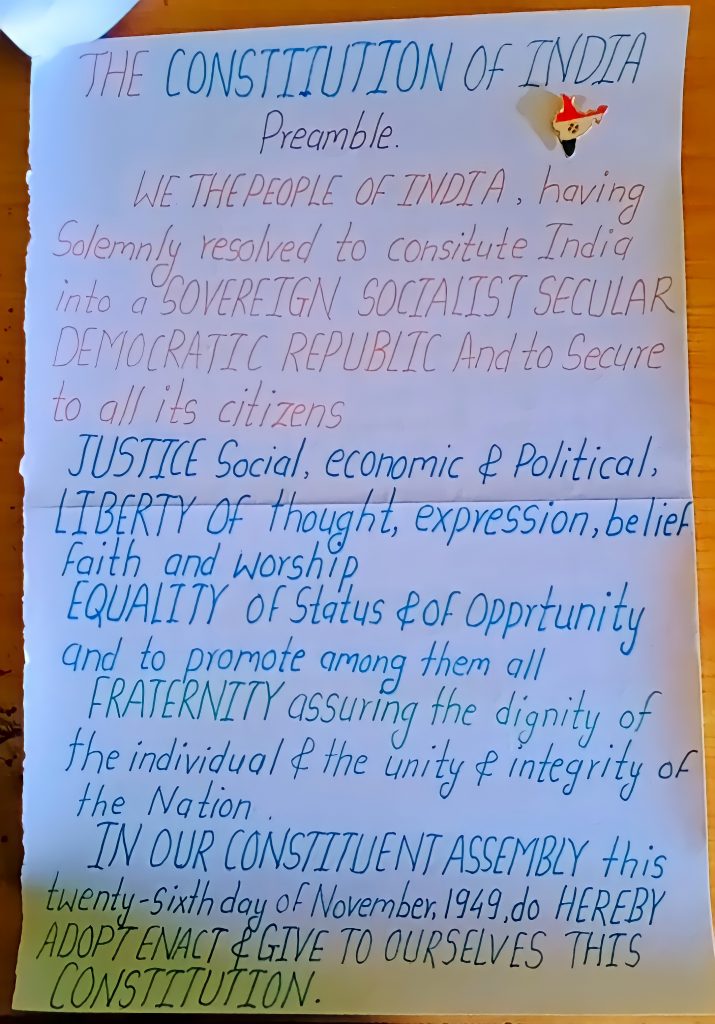 THE CONSTITUTION OF INDIA
Preamble.
WE THE PEOPLE OF INDIA, having
Solemnly resolved to consitute India
into a SOVEREIGN SOCIALIST SECULAR
DEMOCRATIC REPUBLIC And to Secure
to all its citizens
JUSTICE Social, economic & Political,
LIBERTY OF thought, expression, belief
Faith and worship
EQUALITY of Status & of Opprtunity
and to promote among them all
FRATERNITY assuring the dignity of
the individual & the unity & integrity of
the Nation.
IN OUR CONSTITUENT ASSEMBLY this
twenty-sixth day of November, 1949, do HEREBY
ADOPT ENACT & GIVE TO OURSELVES THIS
CONSTITUTION.